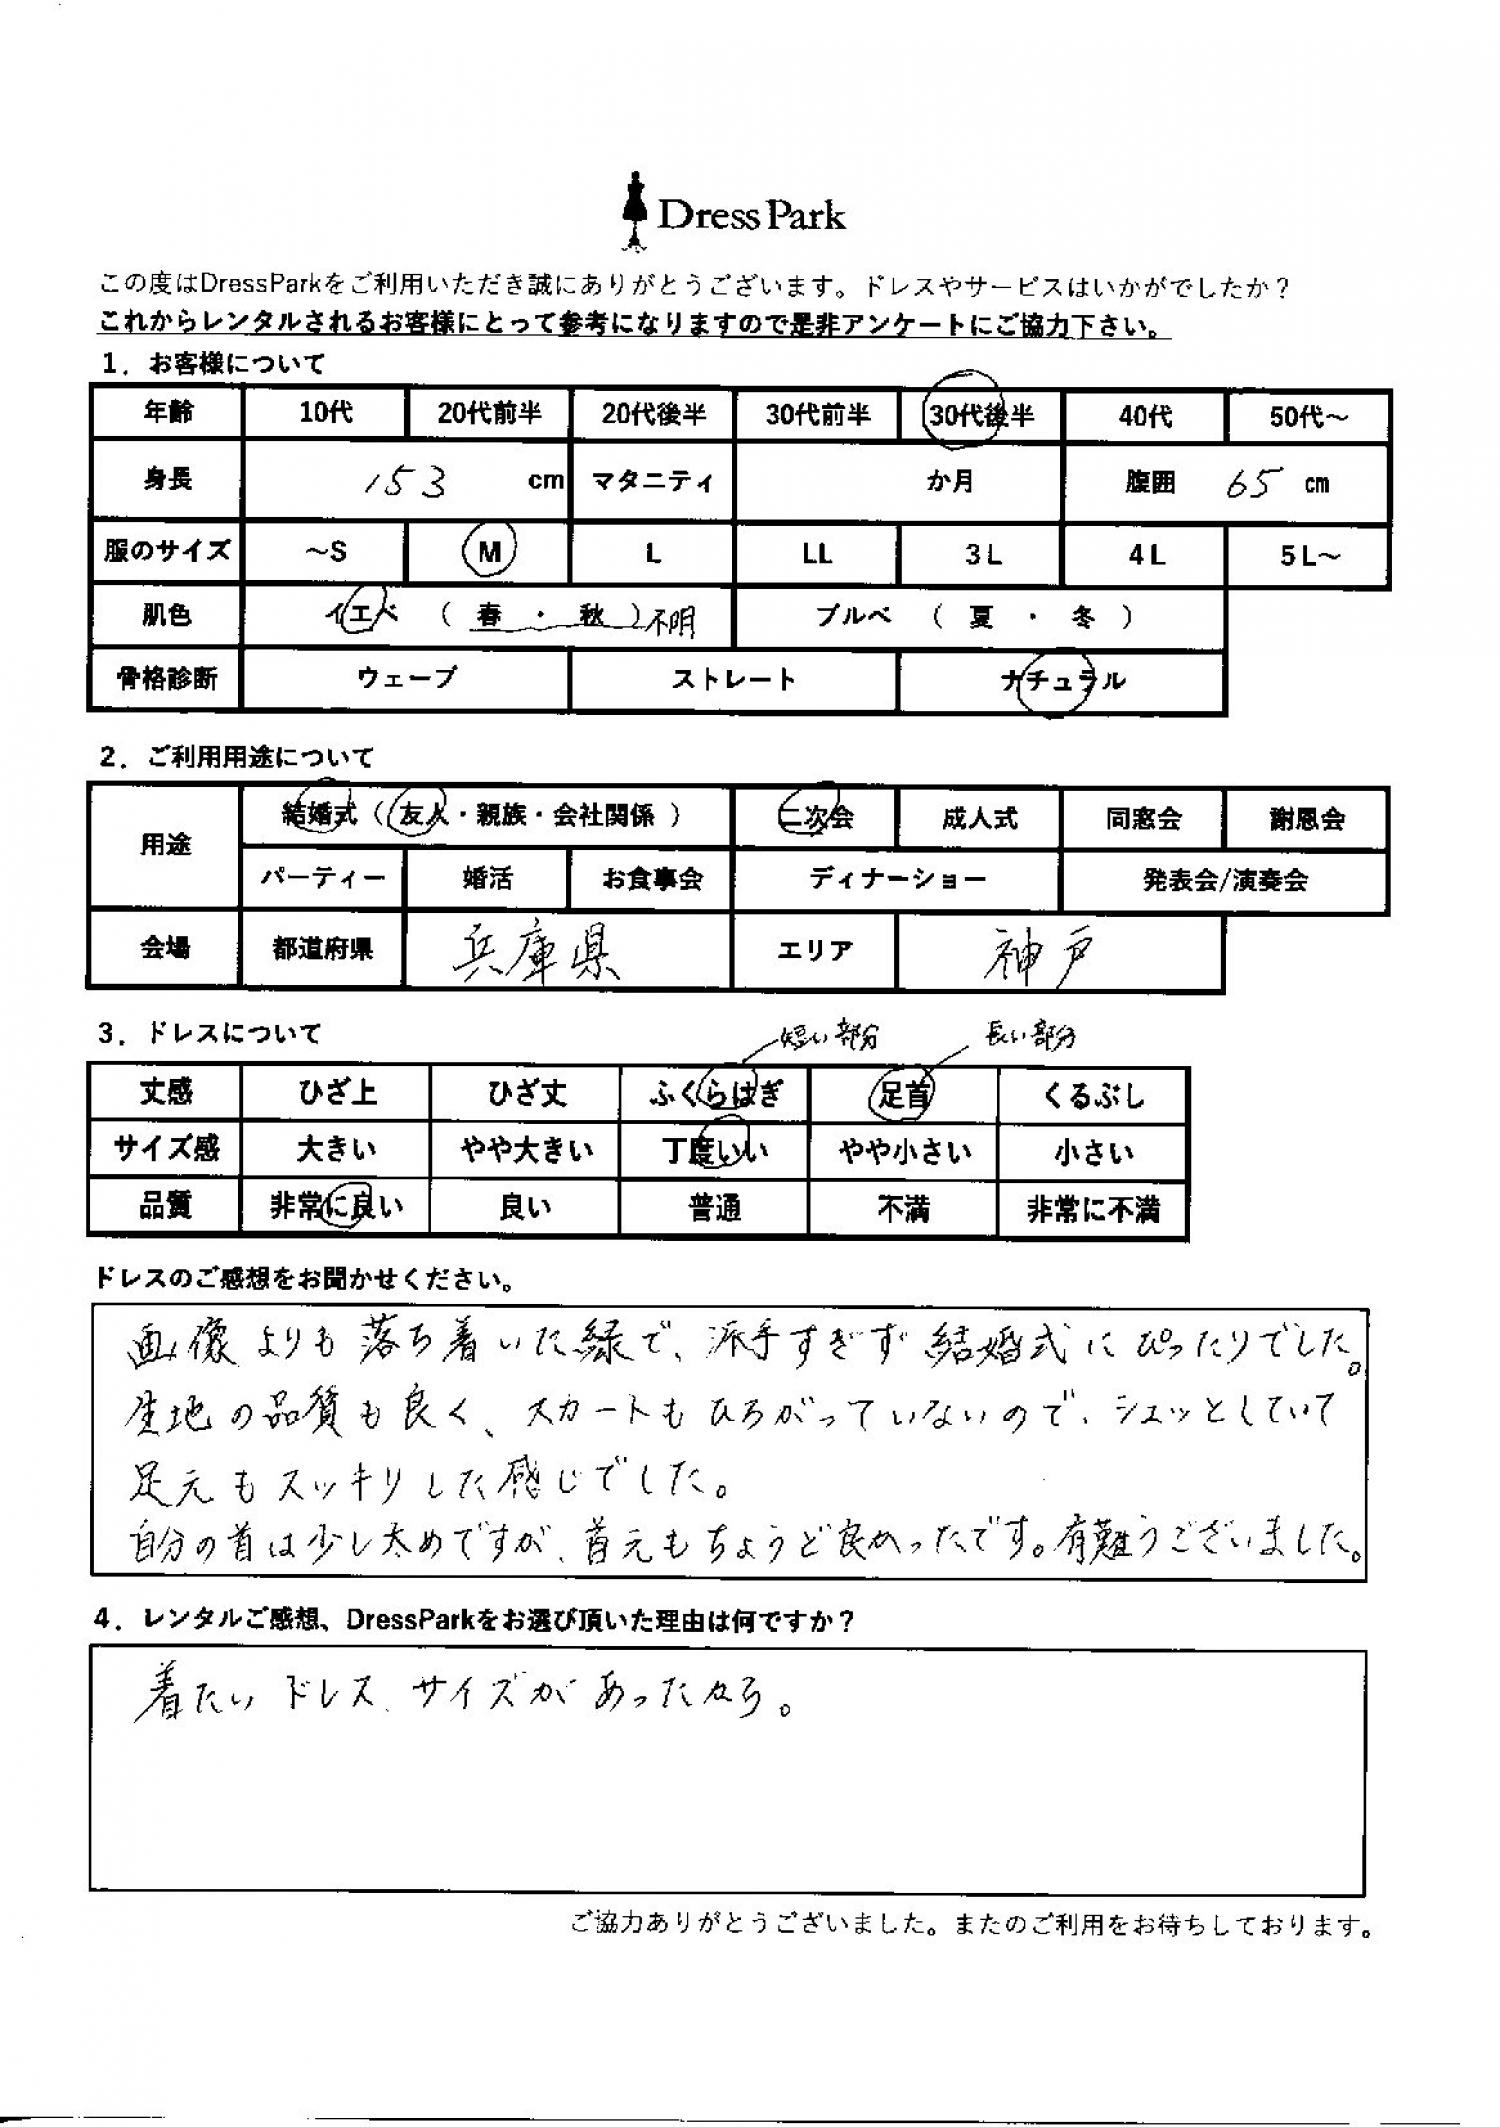 Dress Park
この度はDressParkをご利用いただき誠にありがとうございます。ドレスやサービスはいかがでしたか？
これからレンタルされるお客様にとって参考になりますので是非アンケートにご協力下さい。
1．お客様について
年齢 10代 20代前半 20代後半 30代前半 30代後半 40代 50代～
身長 153 cm マタニティ か月 腹囲 65 cm
服のサイズ ～S M L LL 3L 4L 5L～
肌色 イエベ （ 春 ・ 秋 ）不明 ブルベ （ 夏 ・ 冬 ）
骨格診断 ウェーブ ストレート ナチュラル
2．ご利用用途について
用途 結婚式（友人・親族・会社関係） 二次会 成人式 同窓会 謝恩会
パーティー 婚活 お食事会 ディナーショー 発表会/演奏会
会場 都道府県 兵庫県 エリア 神戸
3．ドレスについて 短い部分 長い部分
丈感 ひざ上 ひざ丈 ふくらはぎ 足首 くるぶし
サイズ感 大きい やや大きい 丁度いい やや小さい 小さい
品質 非常に良い 良い 普通 不満 非常に不満
ドレスのご感想をお聞かせください。
画像よりも落ち着いた緑で、派手すぎず結婚式にぴったりでした。
生地の品質も良く、スカートもひろがっていないので、シュッとしていて
足元もスッキリした感じでした。
自分の首は少し太めですが、首元もちょうど良かったです。有難うございました。
4．レンタルご感想、DressParkをお選び頂いた理由は何ですか？
着たいドレス、サイズがあったから。
ご協力ありがとうございました。またのご利用をお待ちしております。